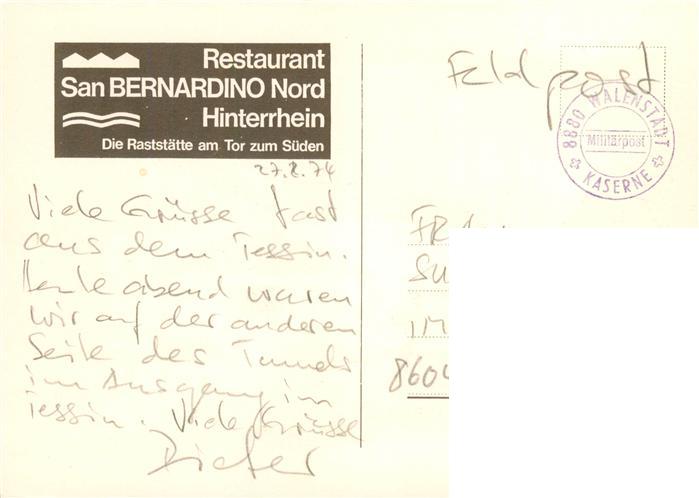 Restaurant
San BERNARDINO Nord
Hinterrhein
Die Raststätte am Tor zum Süden
27.8.74
Viele Grüsse fast
aus dem Tessin.
Heute abend waren
wir auf der anderen
Seite des Tunnels
im Ausgang im
Tessin. Viele Grüsse
Dieter
Feldpost
8880 WALENSTADT
Militärpost
KASERNE